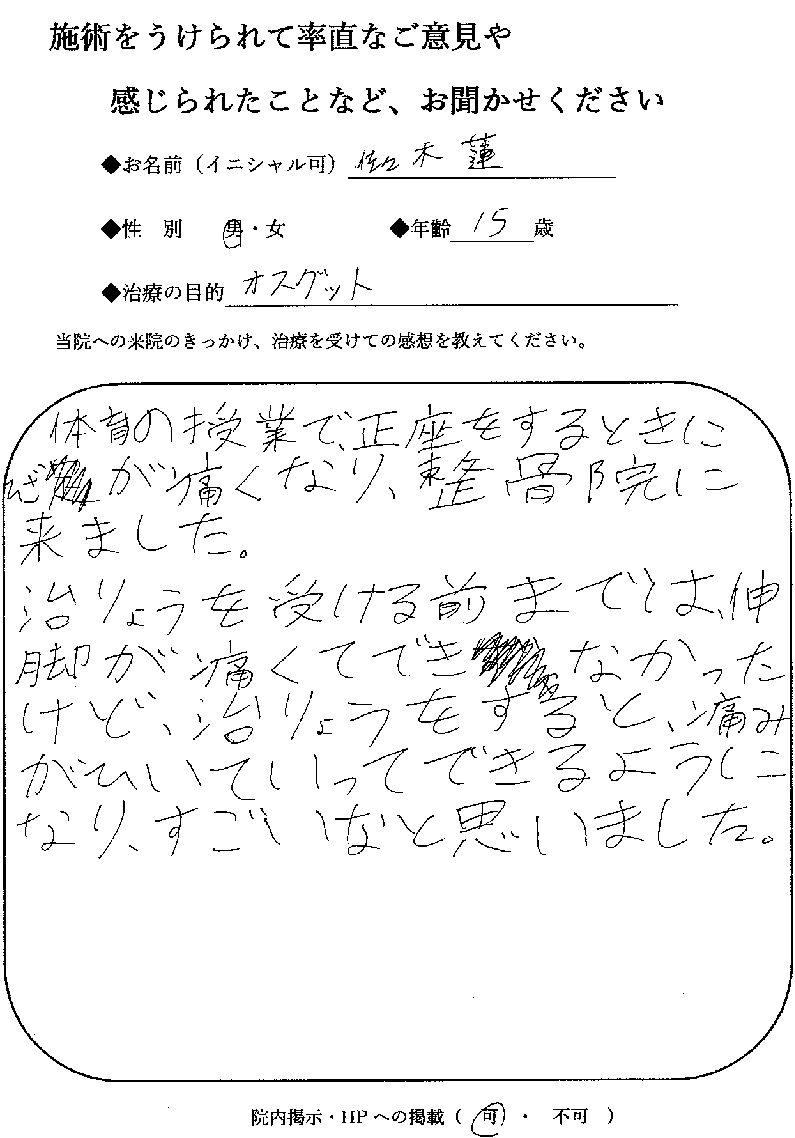 施術をうけられて率直なご意見や
感じられたことなど、お聞かせください
◆お名前（イニシャル可） 佐々木 蓮
◆性 別 男・女 ◆年齢 15 歳
◆治療の目的 オスグット
当院への来院のきっかけ、治療を受けての感想を教えてください。
体育の授業で、正座をするときに
ひざが痛くなり、整骨院に
来ました。
治りょうを受ける前まででは、伸
脚が痛くてできなかった
けど、治りょうをすると、痛み
がひいていってできるように
なり、すごいなと思いました。
院内掲示・HPへの掲載（ 可 ・ 不可 ）